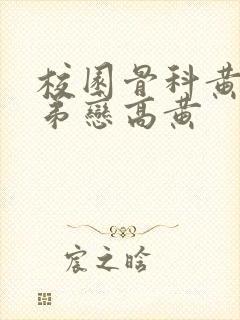 校园骨科黄
弟戀高黄
宸之晗